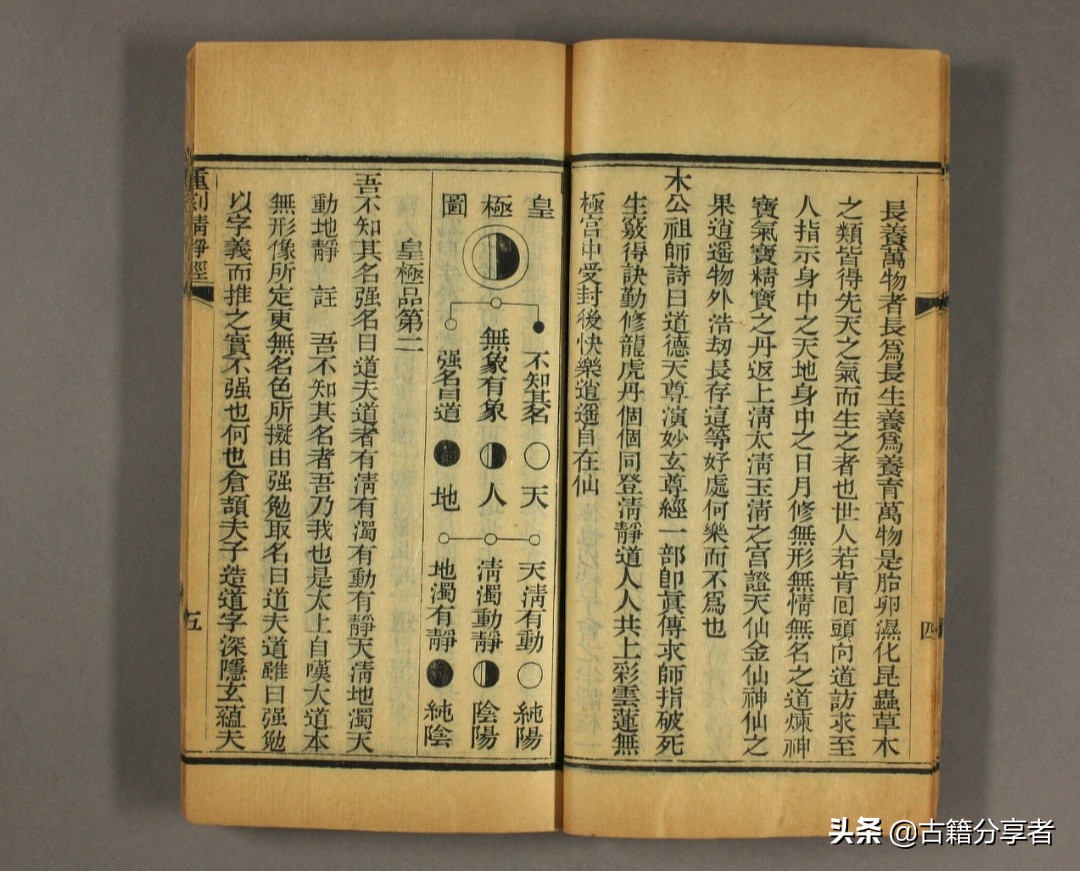 長養萬物者長爲長生養爲養育萬物是胎卵濕化昆蟲草木
之類皆得先天之氣而生之者也世人若肯囘頭向道訪求至
人指示身中之天地身中之日月修無形無情無名之道煉神
寶氣寶精寶之丹返上淸太淸玉淸之宮證天仙金仙神仙之
果逍遥物外浩劫長存這等好處何樂而不爲也
木公祖師詩曰道德天尊演妙玄尊經一部卽眞傳求師指破死
生竅得訣勤修龍虎丹個個同登淸靜道人人共上彩雲蓮無
極宮中受封後快樂逍遥自在仙
四
皇極圖
不知其名
無象有象
强名曰道
天
人
地
天淸有動
淸濁動靜
地濁有靜
純陽
陰陽
純陰
皇極品第二
吾不知其名强名曰道夫道者有淸有濁有動有靜天淸地濁天
動地靜 註 吾不知其名者吾乃我也是太上自嘆大道本
無形像所定更無名色所擬由强勉取名曰道夫道雖曰强勉
以字義而推之實不强也何也倉頡夫子造道字深隱玄蘊夫
重刻淸靜經
五
头条 @古籍分享者